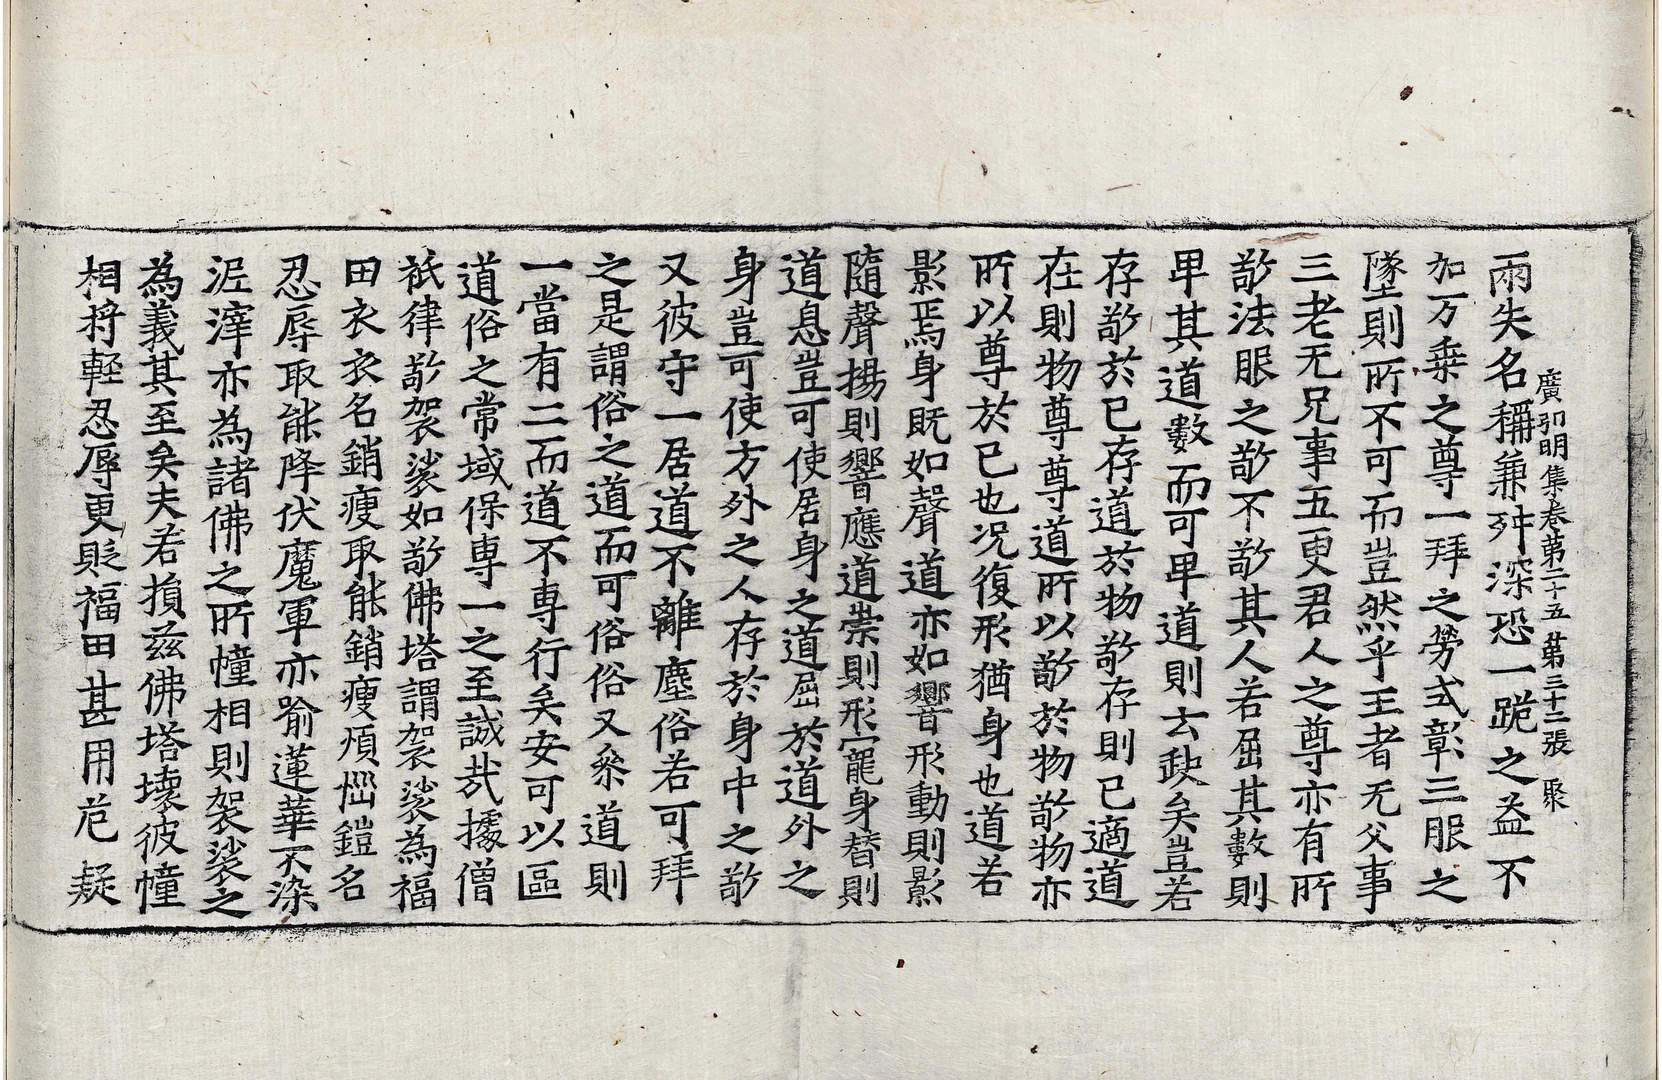 廣弘明集卷第二十五 第三十二張 聚
兩失名稱兼舛深恐一跪之益不
加万乗之尊一拜之勞式彰三服之
墜則所不可而豈然乎王者无父事
三老无兄事五更君人之尊亦有所
敬法服之敬不敬其人若屈其數則
卑其道數而可卑道則云缺矣豈若
存敬於已存道於物敬存則已適道
在則物尊尊道所以敬於物敬物亦
所以尊於已也况復形猶身也道若
影焉身既如聲道亦如響形動則影
隨聲揚則響應道崇則形寵身替則
道息豈可使居身之道屈於道外之
身豈可使方外之人存於身中之敬
又彼守一居道不離塵俗若可拜
之是謂俗之道而可俗俗又叅道則
一當有二而道不專行矣安可以區
道俗之常域保專一之至誠㢤據僧
祇律敬袈裟如敬佛塔謂袈裟為福
田衣衣名銷瘦取能銷瘦煩惱鎧名
忍辱取能降伏魔軍亦喻蓮華不染
泥滓亦為諸佛之所幢相則袈裟之
為義其至矣夫若損兹佛塔壞彼幢
相將輕忍辱更貶福田甚用危疑